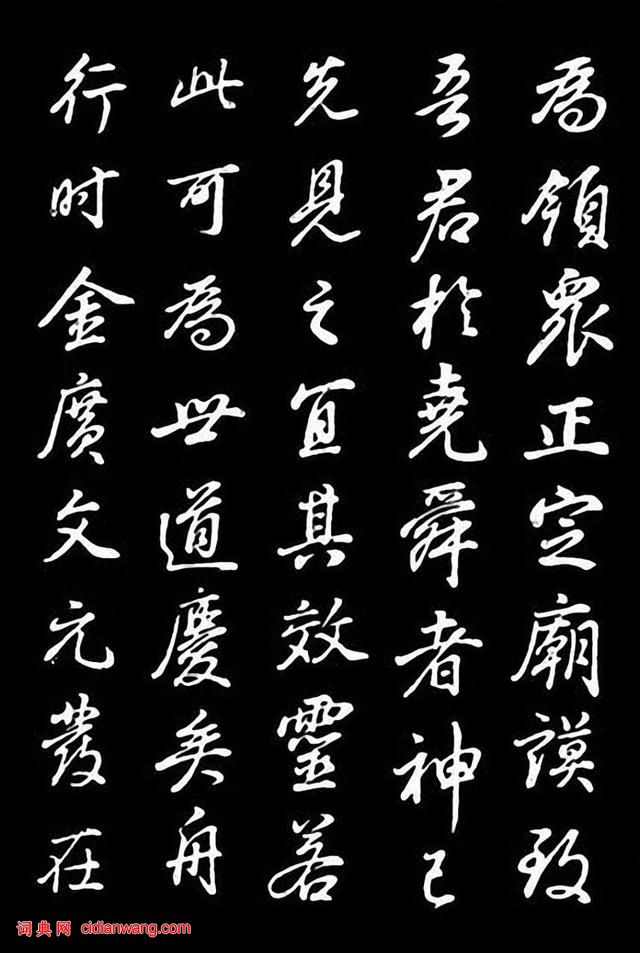 為領眾正定廟謨致
吾君於堯舜者神已
先見之宜其效靈若
此可為世道慶矣舟
行时金廣文元發在
词典网 cidianwang.com